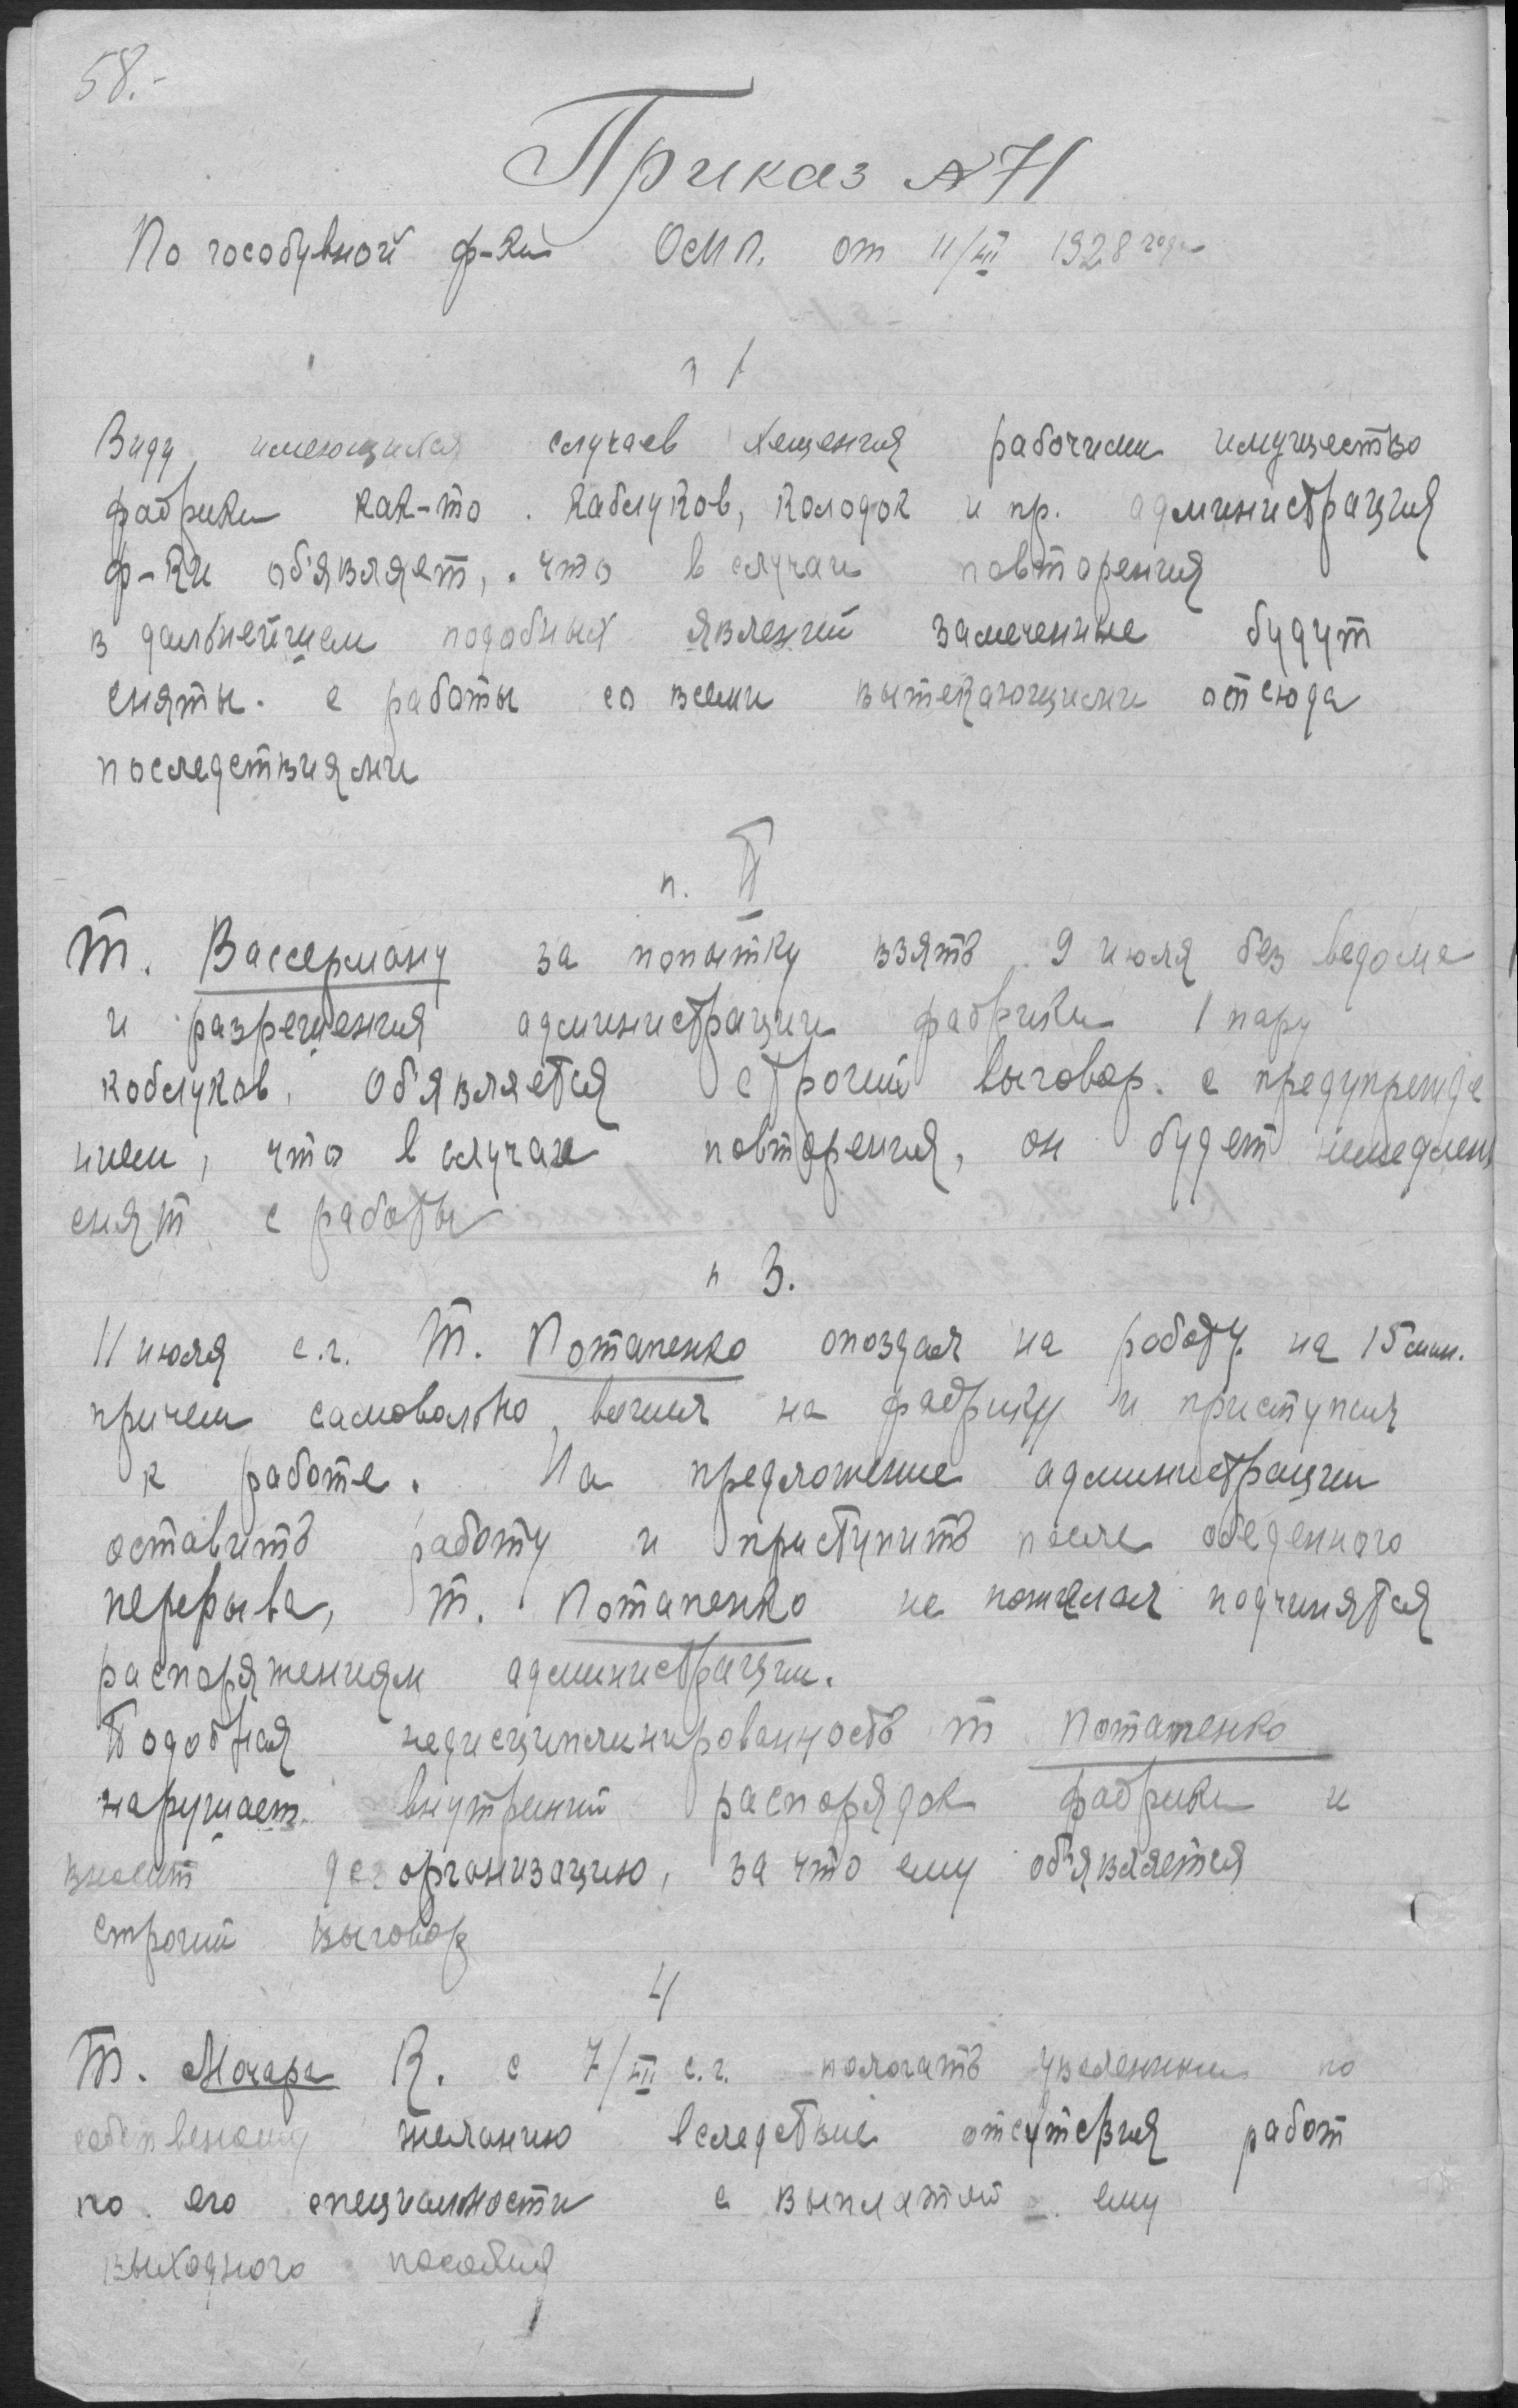 58.-
Приказ №71
По гособувной ф-ки ОСМП. от 11/VII 1928 года
п 1
Виду имеющихся случаев хещения рабочими имущество
фабрики как-то. каблуков, колодок и пр. администрация
ф-ки об'являет, что в случаи повторения
в дальнейшем подобных явлений замеченные будут
сняты. с работы со всеми вытекающими отсюда
последствиями
п. II
Т. Вассерману за попытку взять 9 июля без ведома
и разрешения администрации фабрики 1 пару
коблуков, Об'является строгий выговор. с предупрежде
нием, что в случаи повторения, он будет немедлен
снят с работы
п 3.
11 июля с.г. Т. Потапенко опоздал на работу на 15 мин.
причем самовольно, вошел на фабрику и приступил
к работе. На предложение администрации
оставить работу и приступить после обеденного
перерыва, т. Потапенко не пожелал подчинятся
распоряжениям администрации.
Подобная недисциплинированность т Потапенко
нарушает внутрений распорядок фабрики и
вносит дезорганизацию, за что ему об'является
строгий выговор
4
Т. Мочара К. с 7/VII с.г. пологать уволенным по
собственному желанию вследствие отсутсвия работ
по его специальности с выплатой ему
выходного пособия